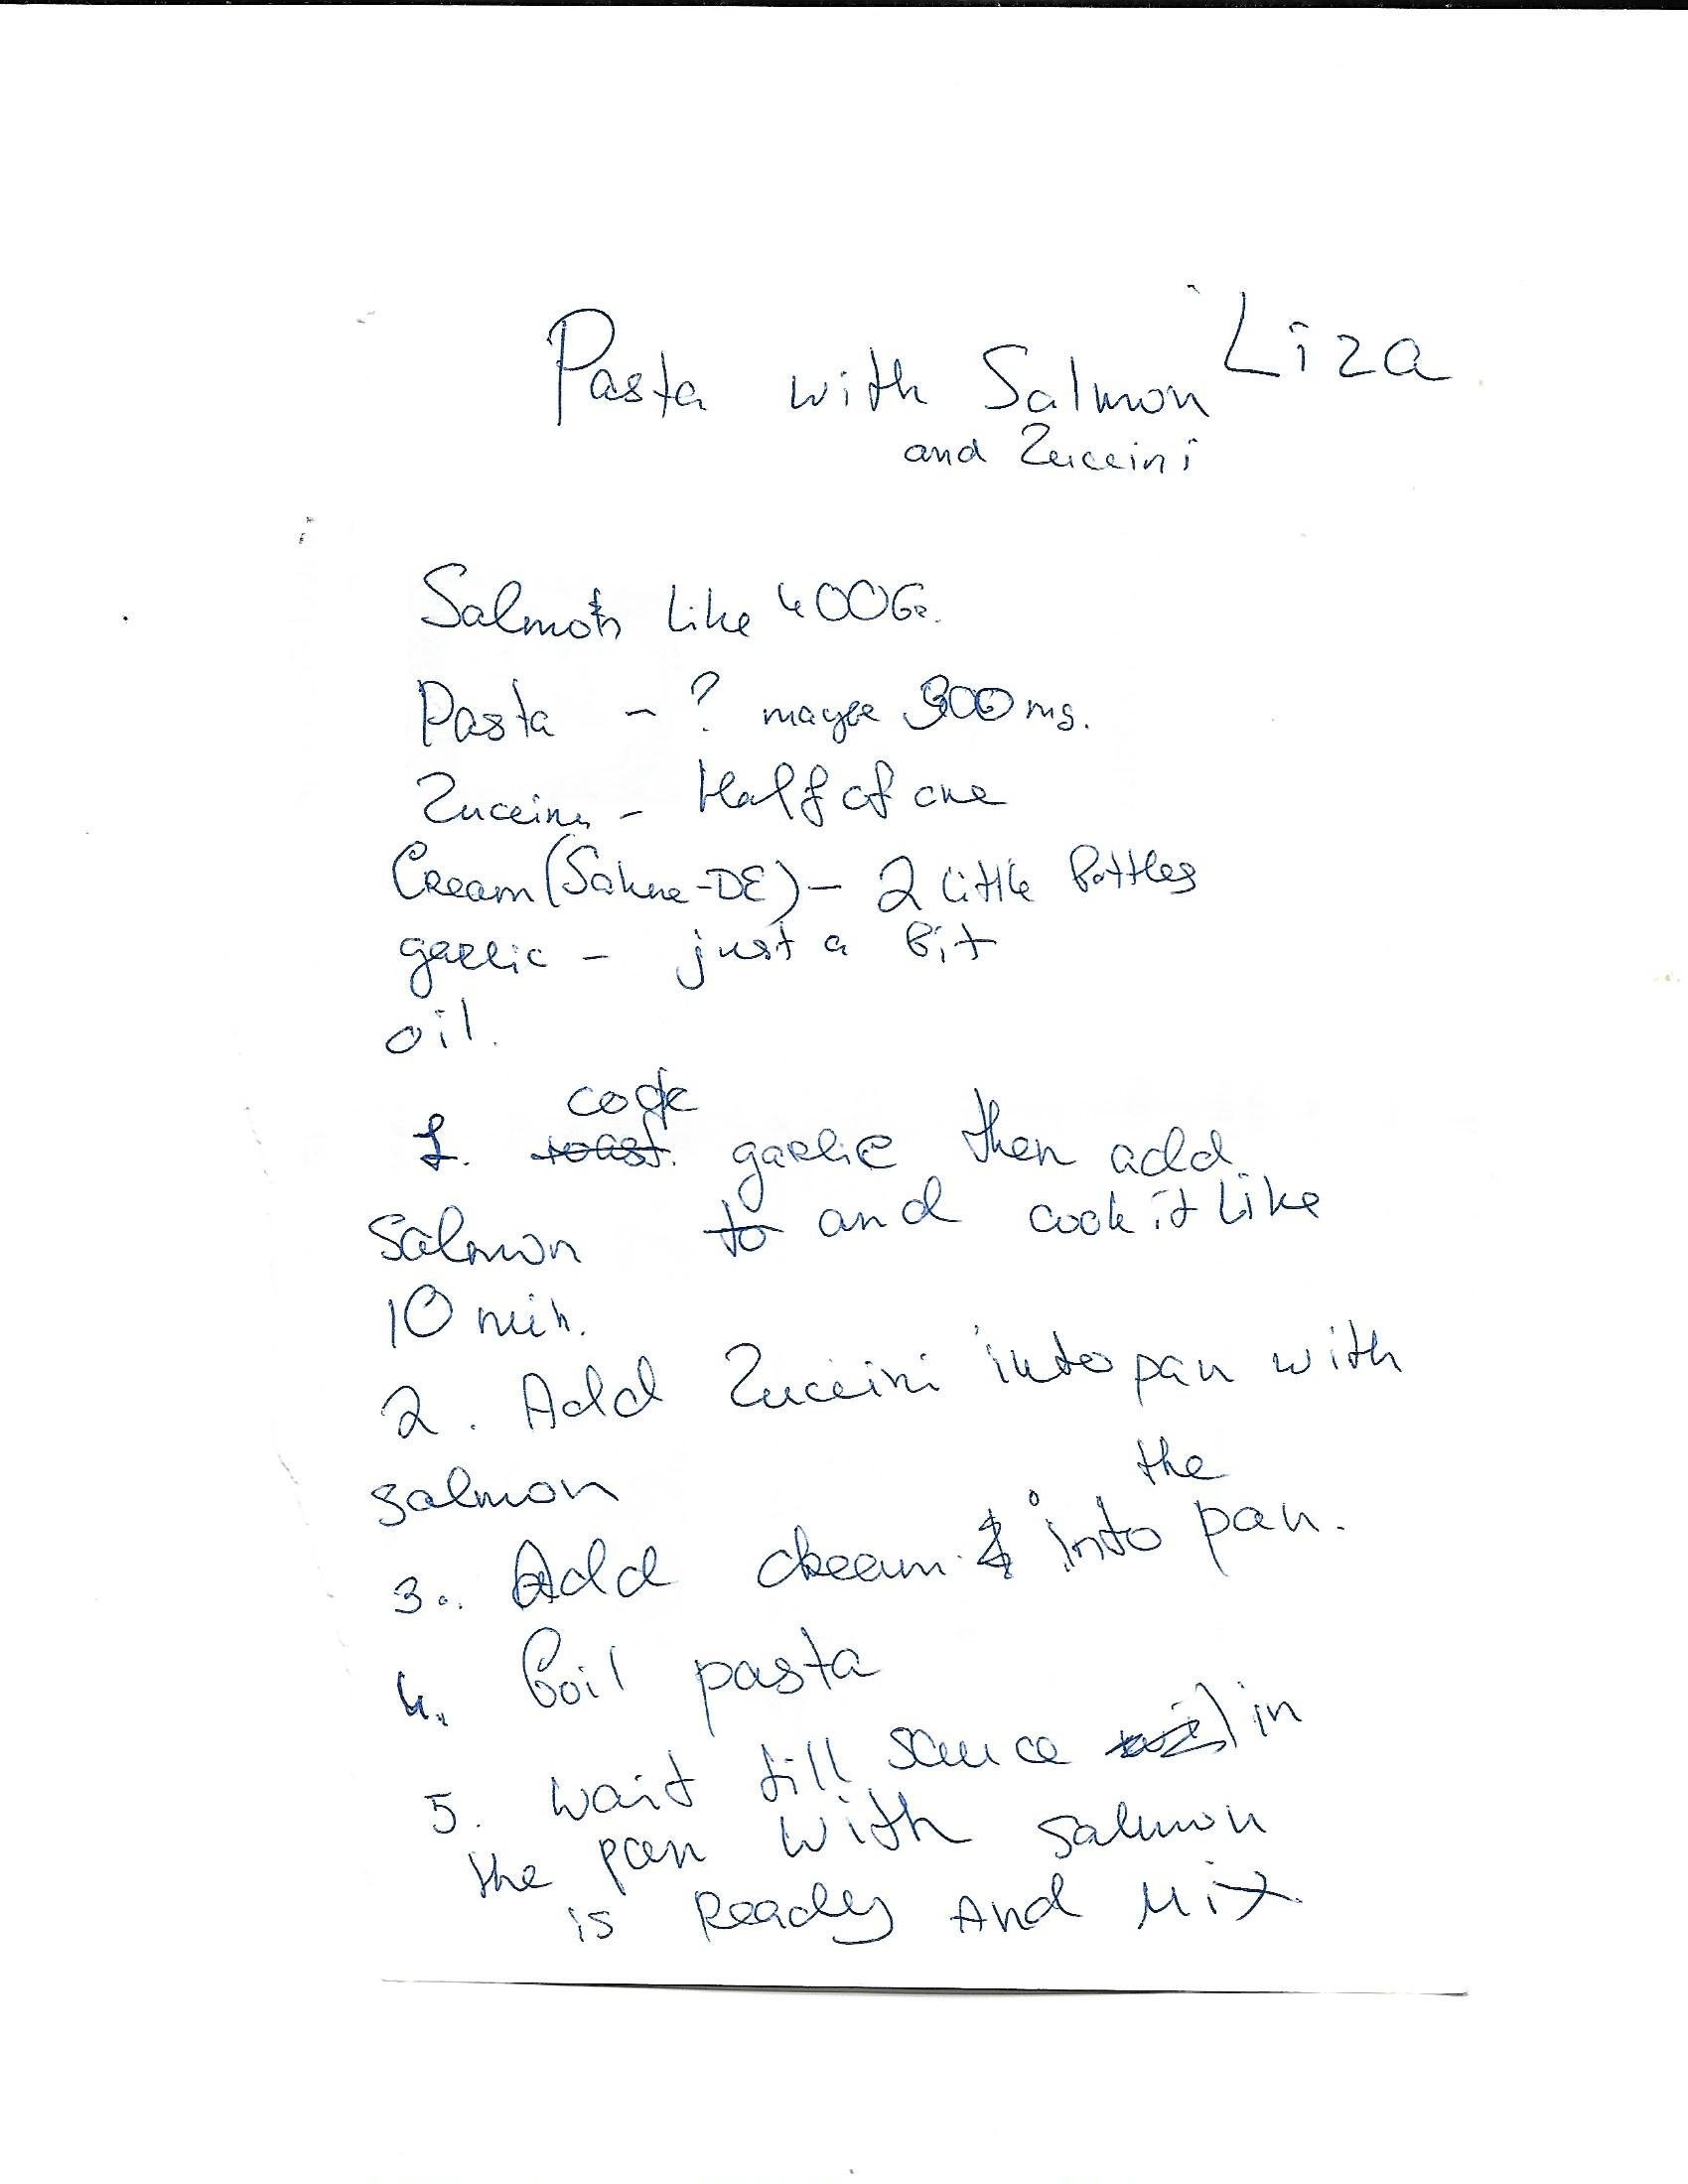 Liza
Pasta with Salmon
and Zuccini
Salmon like 400G.
Pasta - ? maybe 300 mg.
Zuccini - Half of one
Cream (Sahne-DE) - 2 little bottles
garlic - just a bit
oil.
cook
1. roast. garlic then add
salmon to and cook it like
10 min.
2. Add Zuccini into pan with
salmon
the
3. Add cream into pan.
4. boil pasta
5. wait till sauce in
the pan with salmon
is Ready And Mix